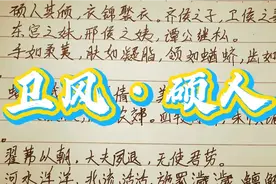 硕人其颀，衣锦褧衣。齐侯之子，卫侯之
东宫之妹，邢侯之姨，谭公维私。
手如柔荑，肤如凝脂，领如蝤蛴，齿如
卫风·硕人
翟茀以朝，大夫夙退，无使君劳。
河水洋洋，北流活活，施罛濊濊，鳣鲔